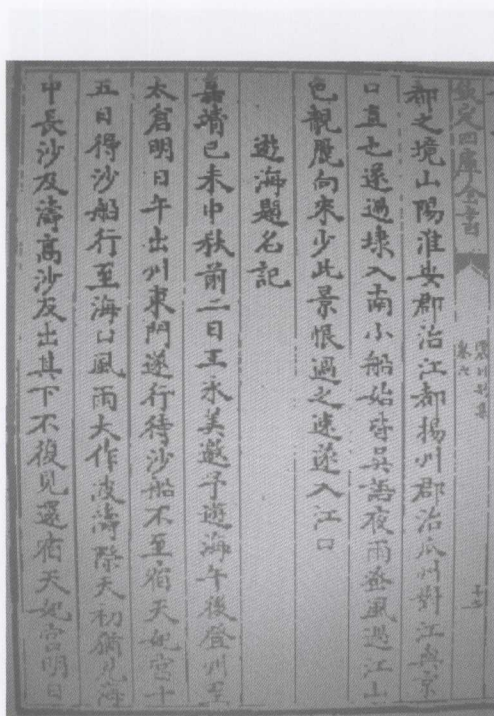 欽定四庫全書
震川別集
卷六
郡之境山陽淮安郡治江都揚州郡治瓜州對江與京
口直也還過埭入南小船始皆吳語夜雨無風過江山
色靚麗向來少此景恨過之速遂入江口
遊海題名記
嘉靖己未中秋前二日王永美邀予遊海午後登州至
太倉明日午出州東門遂行待沙船不至宿天妃宮十
五日得沙船行至海口風雨大作波濤際天初猶見海
中長沙及濤高沙反出其下不復見還宿天妃宮明日